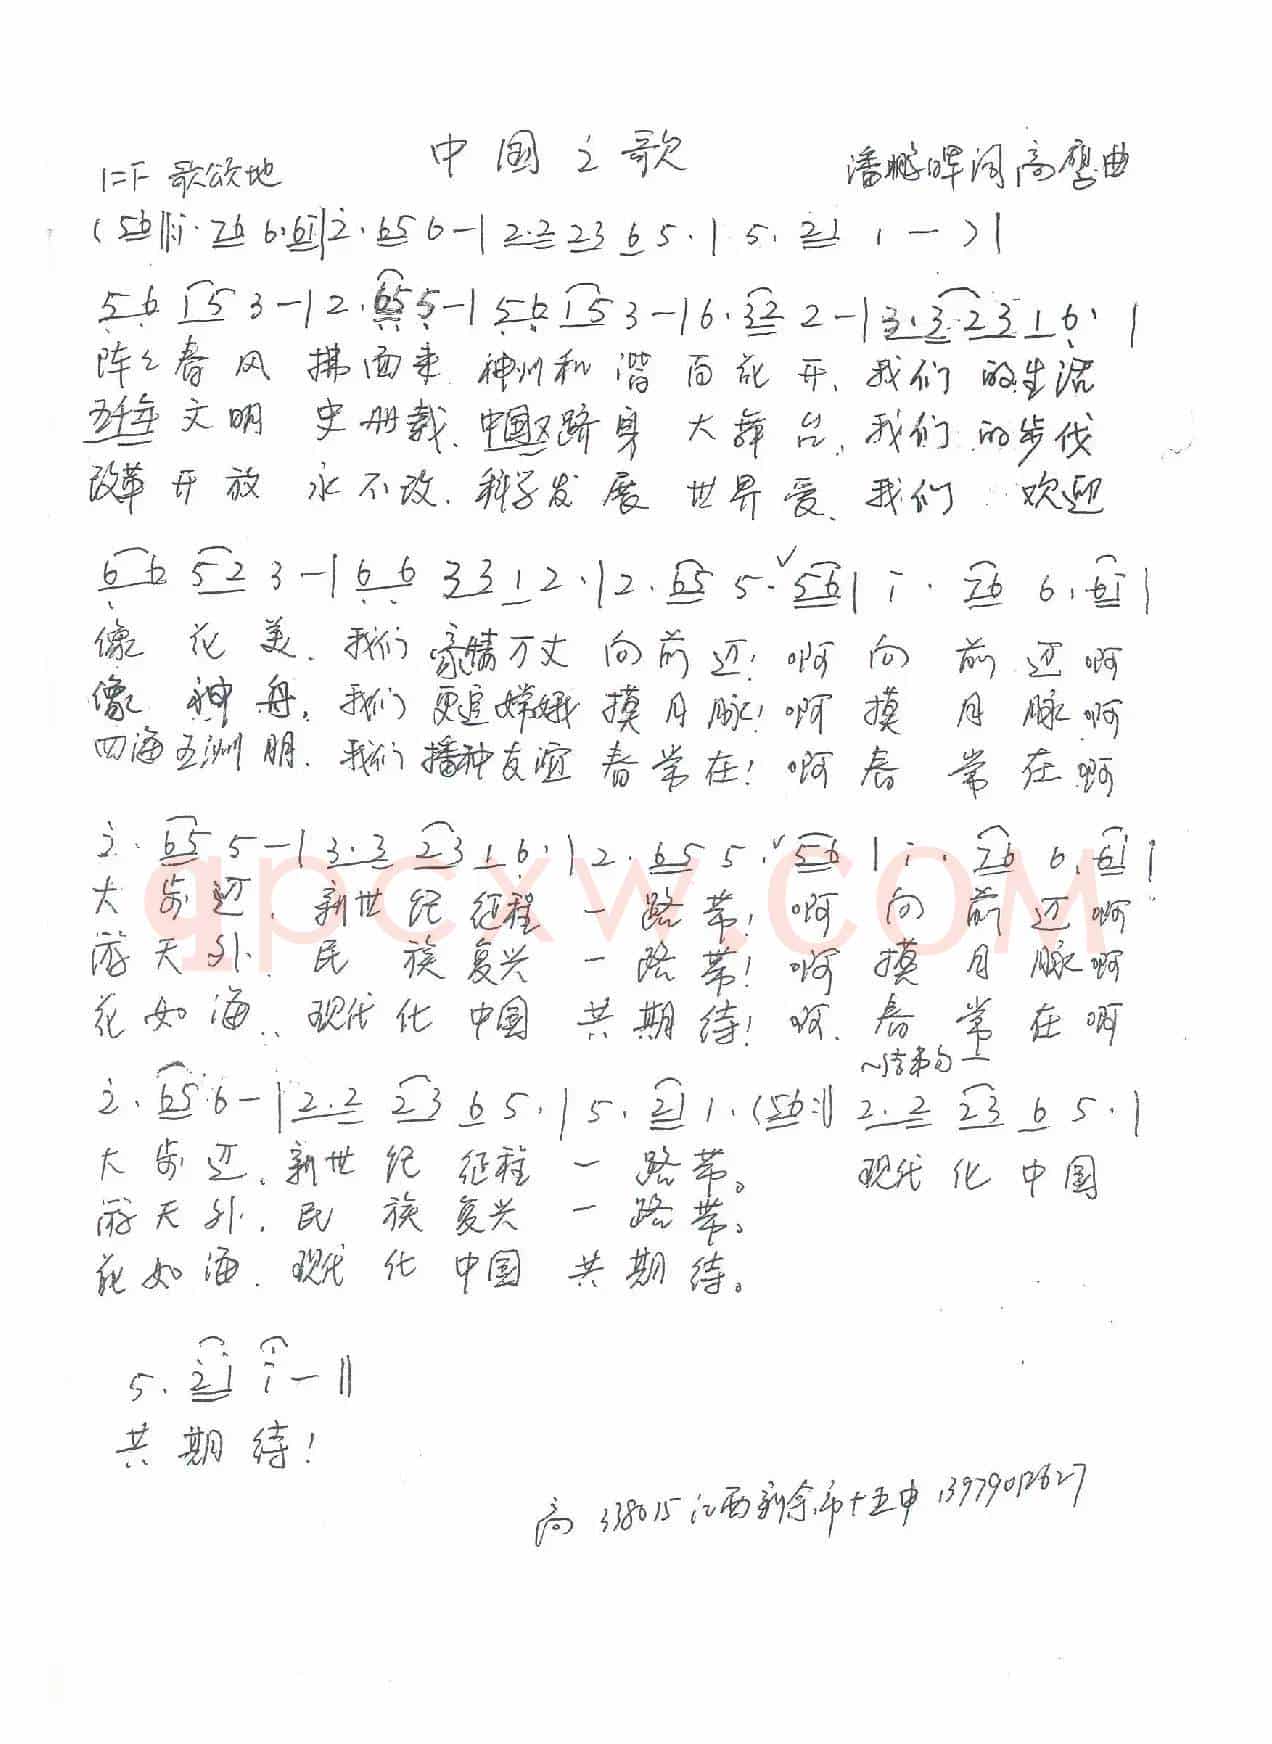 中国之歌
1=F 歌颂地
潘鹏晖词 高鹰曲
(56‖:i·76 6·6i|2·65 6-|2·2 23 6 5·|5·21 1 -)|
56 15 3-|2·65 5-|56 15 3-|6·32 2-|3·3 23 1 6·|
阵々春风 拂面来.神州和谐百花开,我们的生活
五千年文明 史册载.中国跻身大舞台,我们的步伐
改革开放 永不改.科学发展世界爱.我们 欢迎
66 52 3-|66 33 1 2·|2·65 5·√56|i· 76 6·6i|
像花美.我们豪情万丈向前迈!啊向前迈啊
像神舟,我们更追嫦娥摸月脉!啊摸月脉啊
四海五洲朋.我们播种友谊春常在!啊春常在啊
2·65 5-|3·3 23 1 6·|2·65 5·√56|i·76 6·6i|
qpcxw.COM
大步迈.新世纪征程一路带!啊向前迈啊
游天外.民族复兴一路带!啊摸月脉啊
花如海.现代化中国共期待!啊.春常在啊
~结束句~
2·65 6-|2·2 23 6 5·|5·21 1·(56:‖2·2 23 6 5·|
大步迈.新世纪征程一路带。 现代化中国
游天外.民族复兴一路带。
花如海.现代化中国共期待。
5·21 i-‖
共期待!
高 338015江西新余市十五中 13979012627